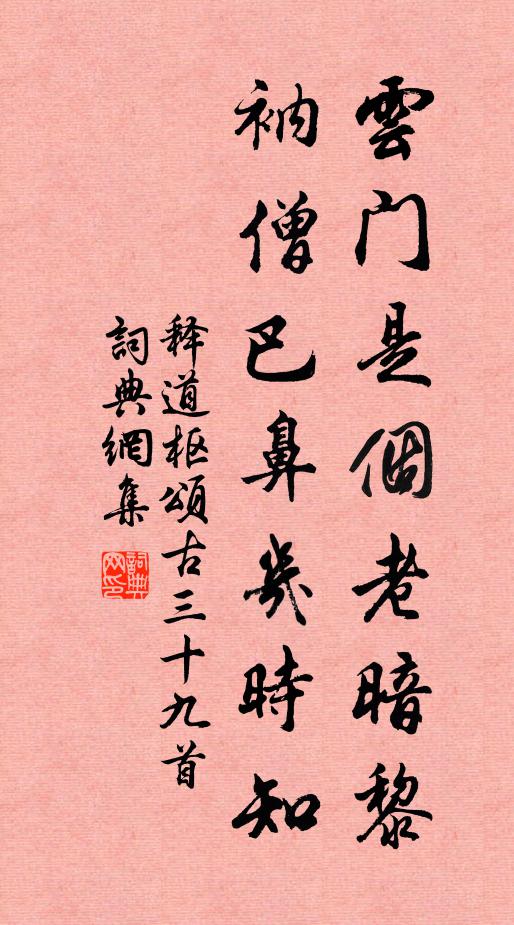 雲门是個老暗黎
衲僧巴鼻幾時知
释道枢頌古三十九首
詞典網集
詞典网印